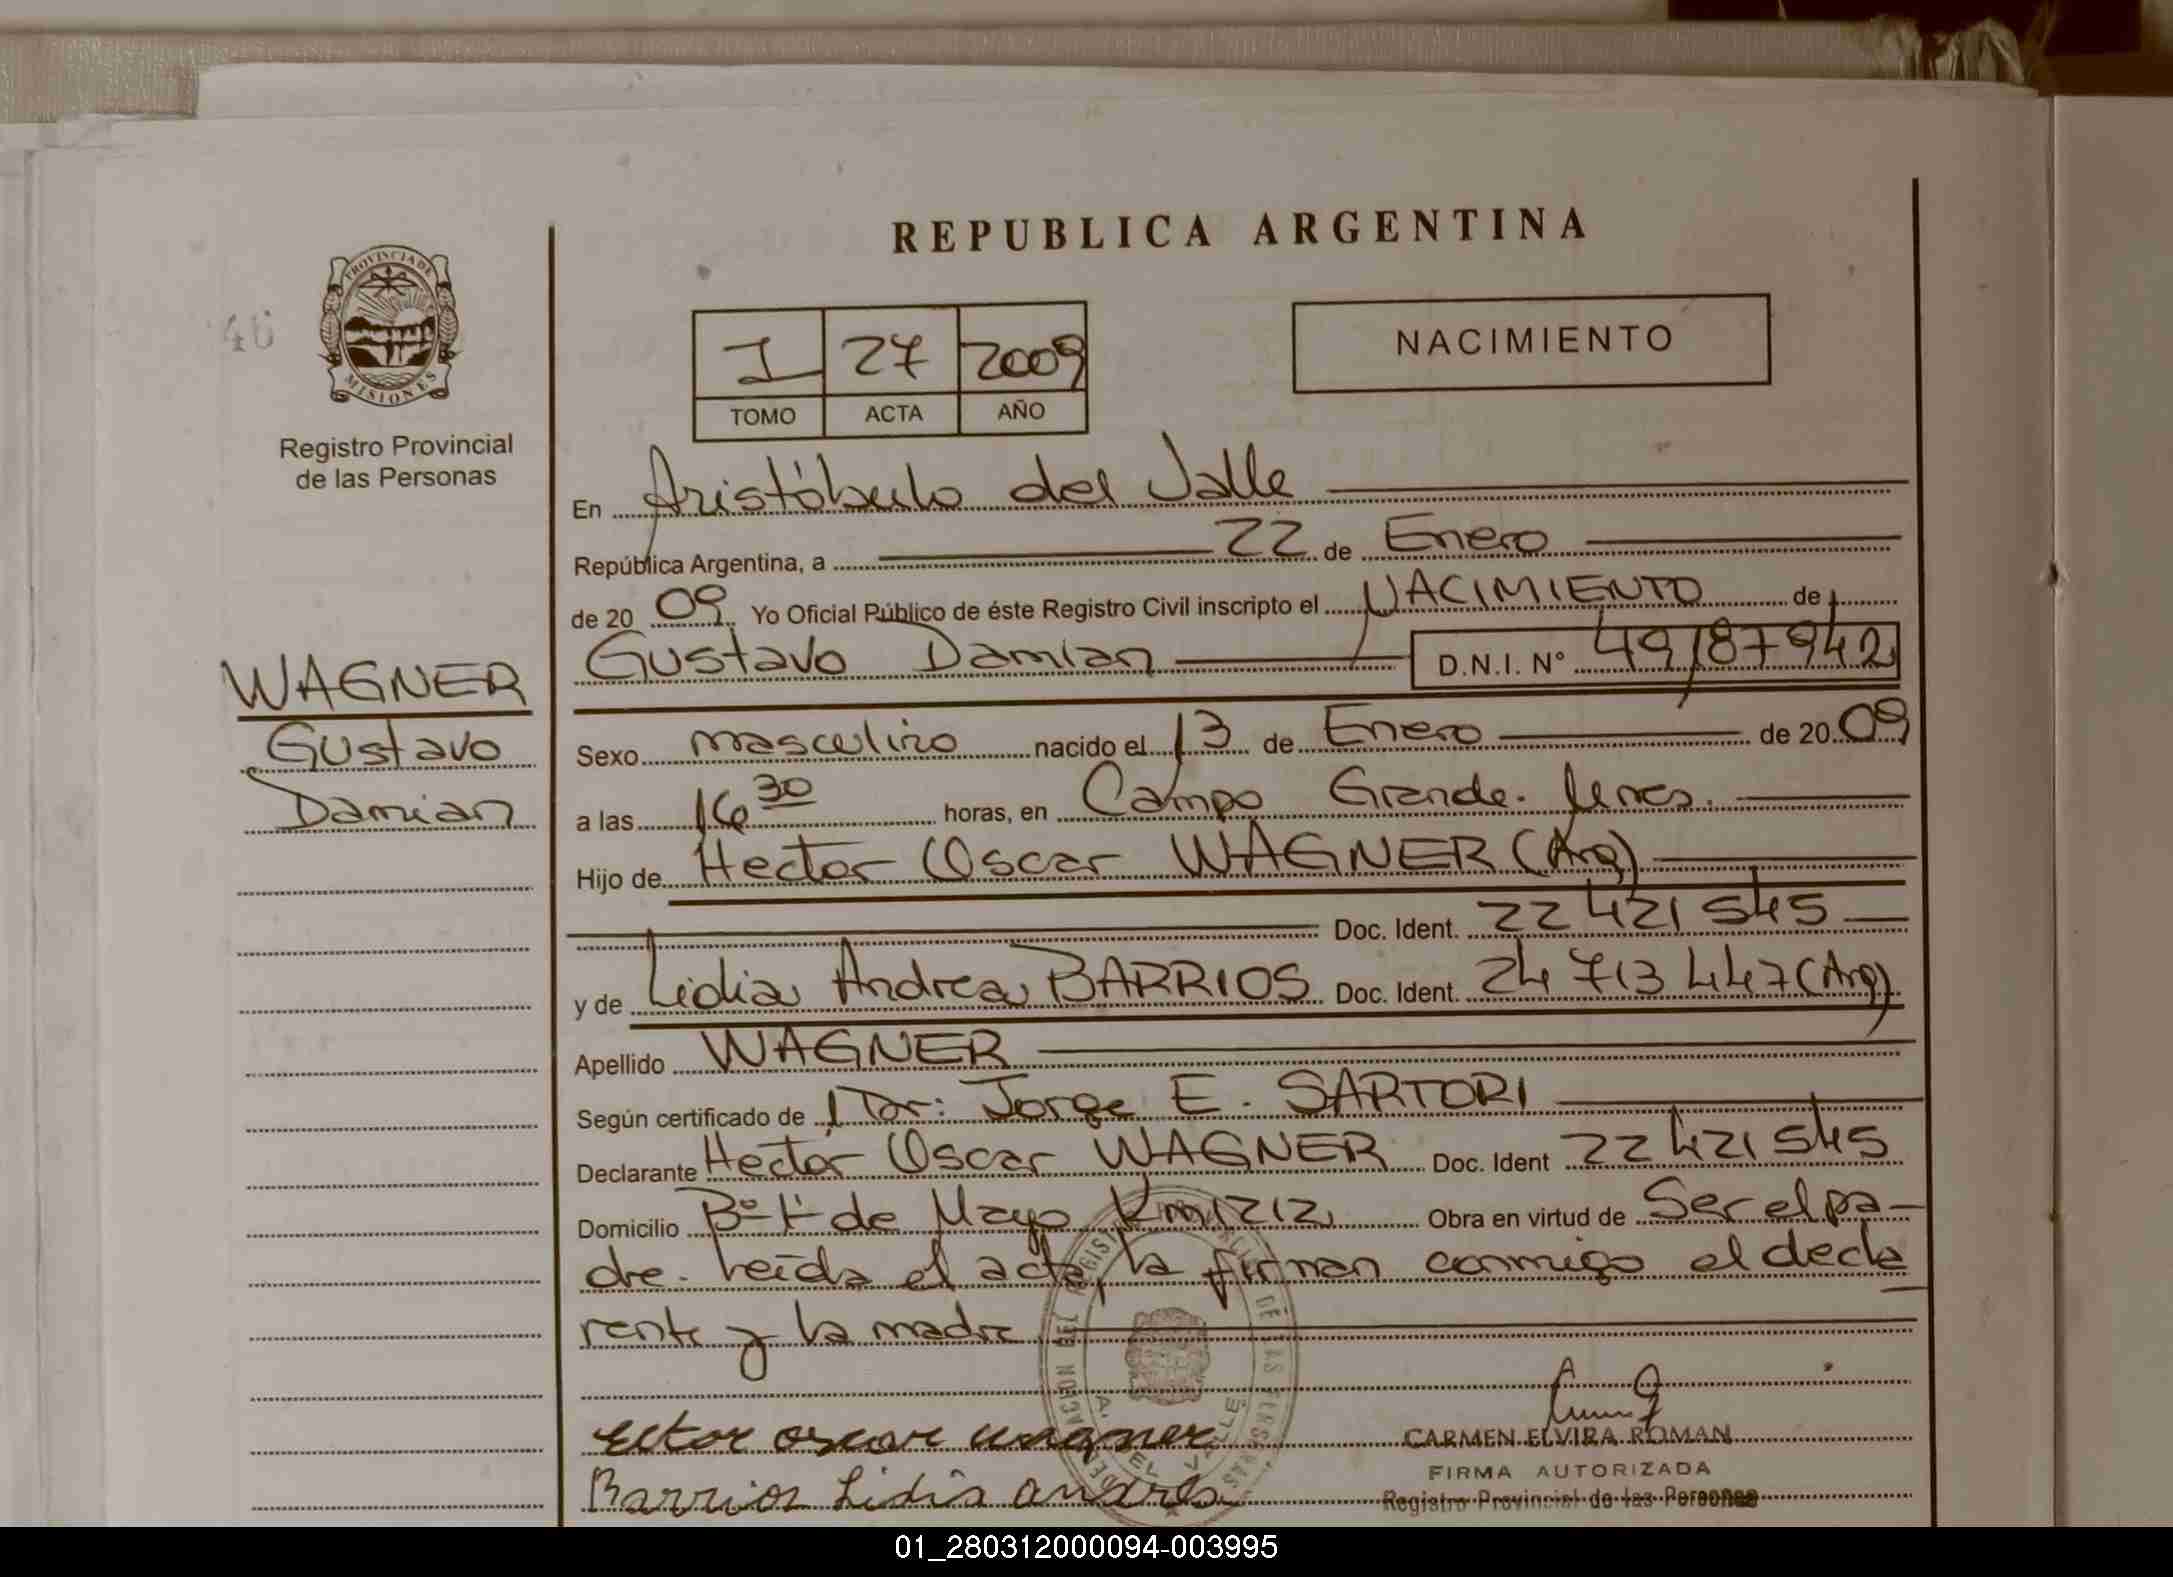 REPUBLICA ARGENTINA
PROVINCIA DE MISIONES
Registro Provincial
de las Personas
I 27 2009
TOMO ACTA AÑO
NACIMIENTO
En Aristóbulo del Valle
República Argentina, a 22 de Enero
de 2009 Yo Oficial Público de éste Registro Civil inscripto el NACIMIENTO de
Gustavo Damian D.N.I. Nº 49187942
WAGNER
Gustavo
Damian
Sexo masculino nacido el 13 de Enero de 2009
a las 16 30 horas, en Campo Grande.
Hijo de Hector Oscar WAGNER (Arg)
Doc. Ident. 22 421 545
y de Lidia Andrea BARRIOS Doc. Ident. 24 713 447 (Arg)
Apellido WAGNER
Según certificado de Dr: Jorge E. SARTORI
Declarante Hector Oscar WAGNER Doc. Ident 22 421 545
Domicilio Bº 1º de Mayo Km 1212 Obra en virtud de Ser el pa-
dre. Leída el acta, la firman conmigo el decla
rante y la madre
ector oscar wagner
Barrios Lidia andrea
CARMEN ELVIRA ROMAN
FIRMA AUTORIZADA
Registro Provincial de las Personas
01_280312000094-003995